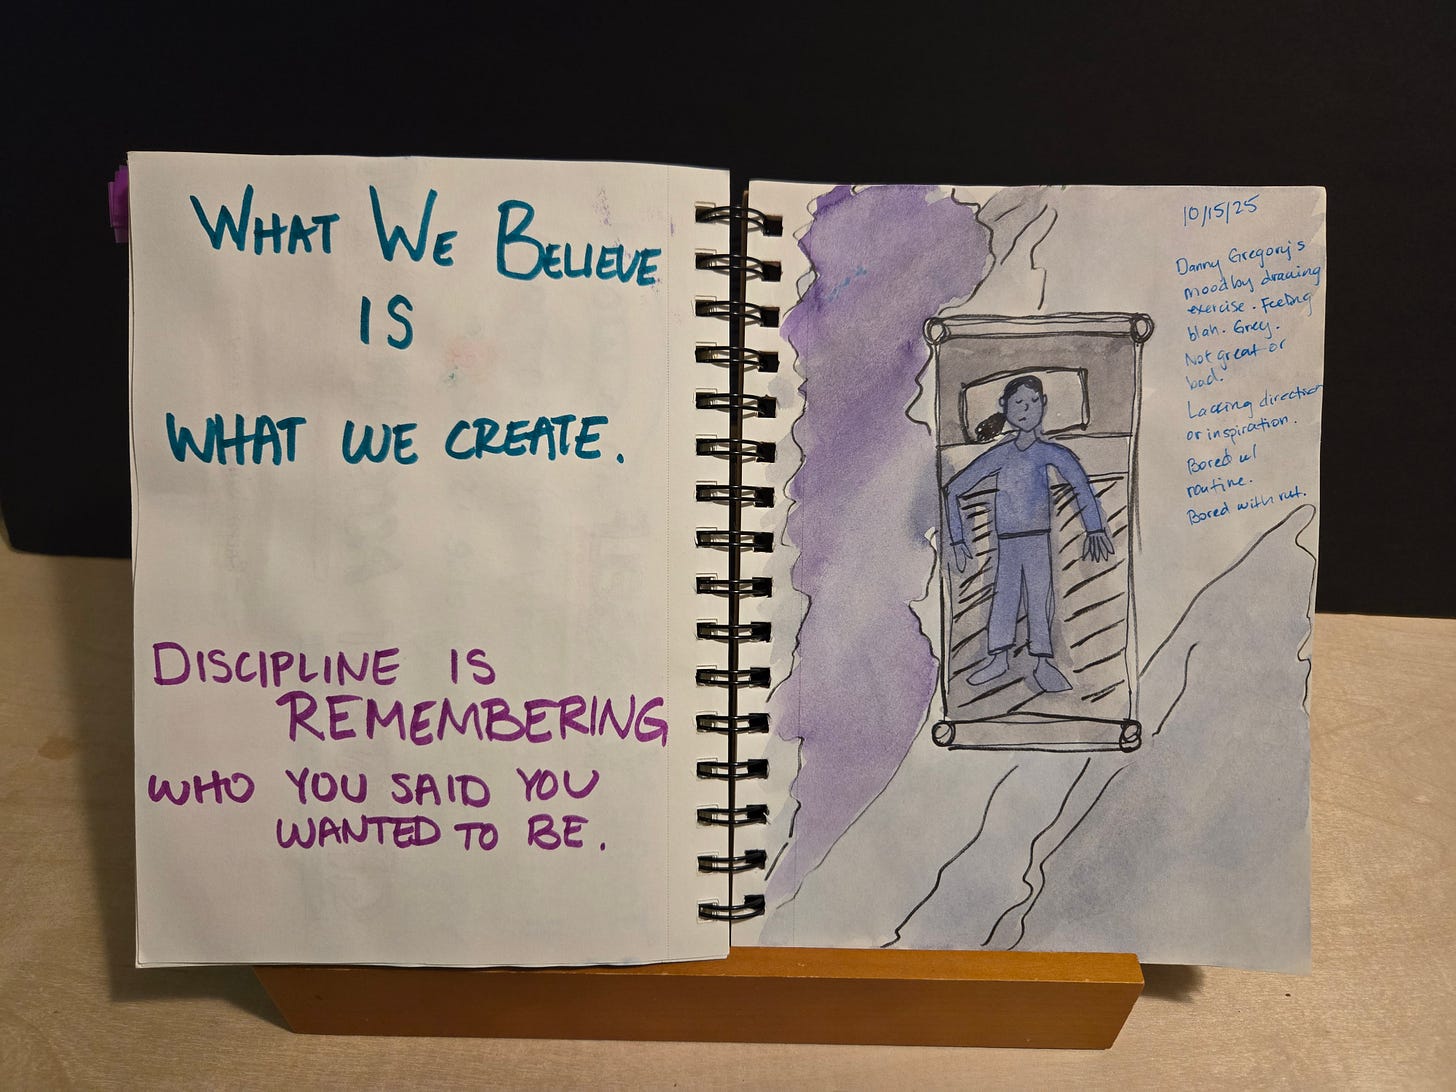 WHAT WE BELIEVE
IS
WHAT WE CREATE.
DISCIPLINE IS
REMEMBERING
WHO YOU SAID YOU
WANTED TO BE.
10/15/25
Danny Gregory's
mood by drawing
exercise. Feeling
blah. Grey.
Not great or
bad.
Lacking direction
or inspiration.
Bored w/
routine.
Bored with rut.